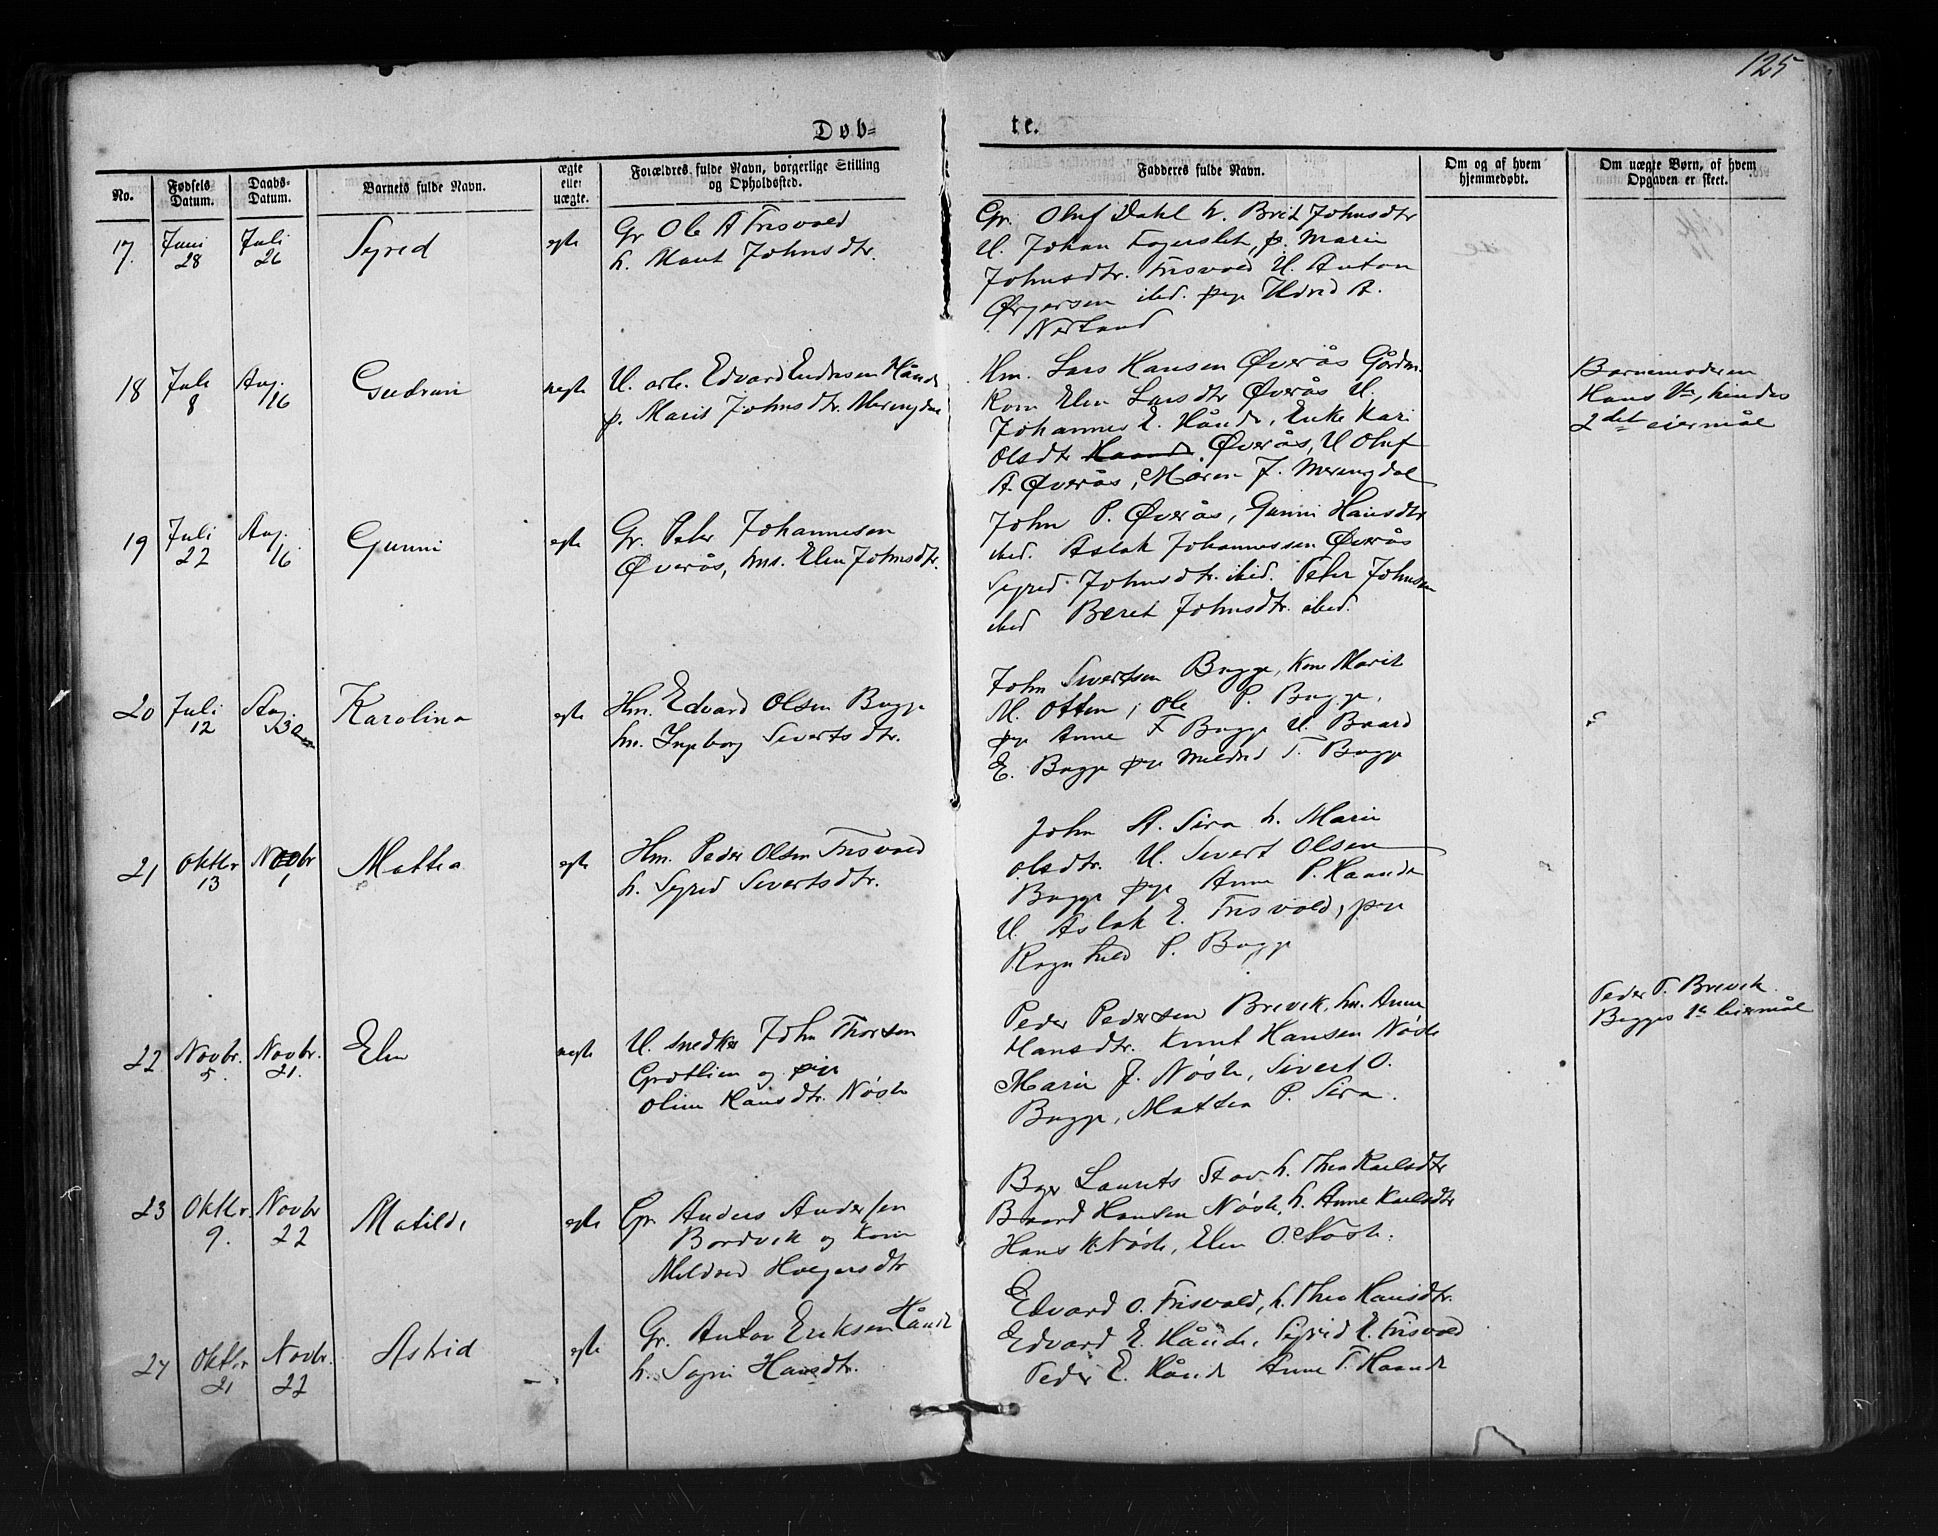 125
Døb=
te.
No.
Fødsels Datum.
Daabs- Datum.
Barnets fulde Navn.
ægte eller uægte.
Forældres fulde Navn, borgerlige Stilling og Opholdssted.
Fadderes fulde Navn.
Om og af hvem hjemmedøbt.
Om uægte Børn, af hvem Opgaven er skeet.
17. Juni 28 Juli 26 Syred egte
Gr Ole A Frisvold
h. Marit Johnsdtr.
Gr. Oluf Dahl h. Brit Johnsdtr
U. Johan Fagerslet, p. Marie
Johnsdtr. Frisvold U. Anton
Ørjersen ibd. pige Ildrid A.
Nerland
18 Juli 8 Aug. 16 Gudrun uegte
U. arb. Edvard Endresen Hånde
p. Marit Johnsdtr. Meringdal
Hm. Lars Hansen Øverås Gårdm.
Kone Elen Larsdtr Øverås U.
Johannes E. Hånde, Enke Kari
Olsdtr Haande Øverås, U Oluf
A. Øverås, Maren J. Meringdal
Barnemoderen
Hans 1ste, hendes
2det leiermål
19 Juli 22 Aug. 16 Gunni egte
Gr. Peter Johannesen
Øverås, hus. Elen Johnsdtr.
John P. Øverås, Gunni Hansdtr
ibid. Aslak Johannessen Øverås
Syred Johnsdtr. ibid. Peter Johnsen
ibid Beret Johnsdtr. ibid.
20 Juli 12 Aug. 30 Karolina egte
Hm. Edvard Olsen Bugge
hu. Ingeborg Sivertsdtr.
John Sivertsen Bugge, Kone Marit
M. Otten, Ole P. Bugge,
pige Anne F Bugge U. Baard
E. Bugge pige Mildrid T. Bugge
21 Oktbr. 13 Novbr 1 Mattea egte
Hm. Peder Olsen Frisvold
h. Syred Sivertsdtr.
John A. Sira h. Marie
Olsdtr. U. Sivert Olsen
Bugge pige Anne P. Haande
U. Aslak E. Frisvold, pige
Ragnhild P. Bugge
22 Novbr. 5. Novbr. 21. Elen uegte
U. snedker John Thorsen
Grotlien og pige
Oline Hansdtr. Nøste
Peder Pedersen Brevik, hu. Anne
Hansdtr. Knut Hansen Nøste
Marie J. Nøste, Sivert O.
Bugge, Mattea P. Sira.
Peder P. Brevik.
Begges 1ste leiermål
23 Oktbr. 9. Novbr 22 Matilde egte
Gr. Anders Andersen
Bordvik og Kone
Mildrid Holgersdtr
Bager Laurits Stav h. Thea Karlsdtr
Baard Hansen Nøste, h. Anne Karlsdtr
Hans K. Nøste, Elen O. Nøste.
24 Oktbr 21 Novbr. 22 Astrid egte
Gr. Anton Eriksen Hånde
h. Sogni Hansdtr.
Edvard O. Frisvold, h. Thea Hansdtr.
Edvard E. Hånde, Sigrid E. Frisvold
Peder E. Hånde Anne P. Haande